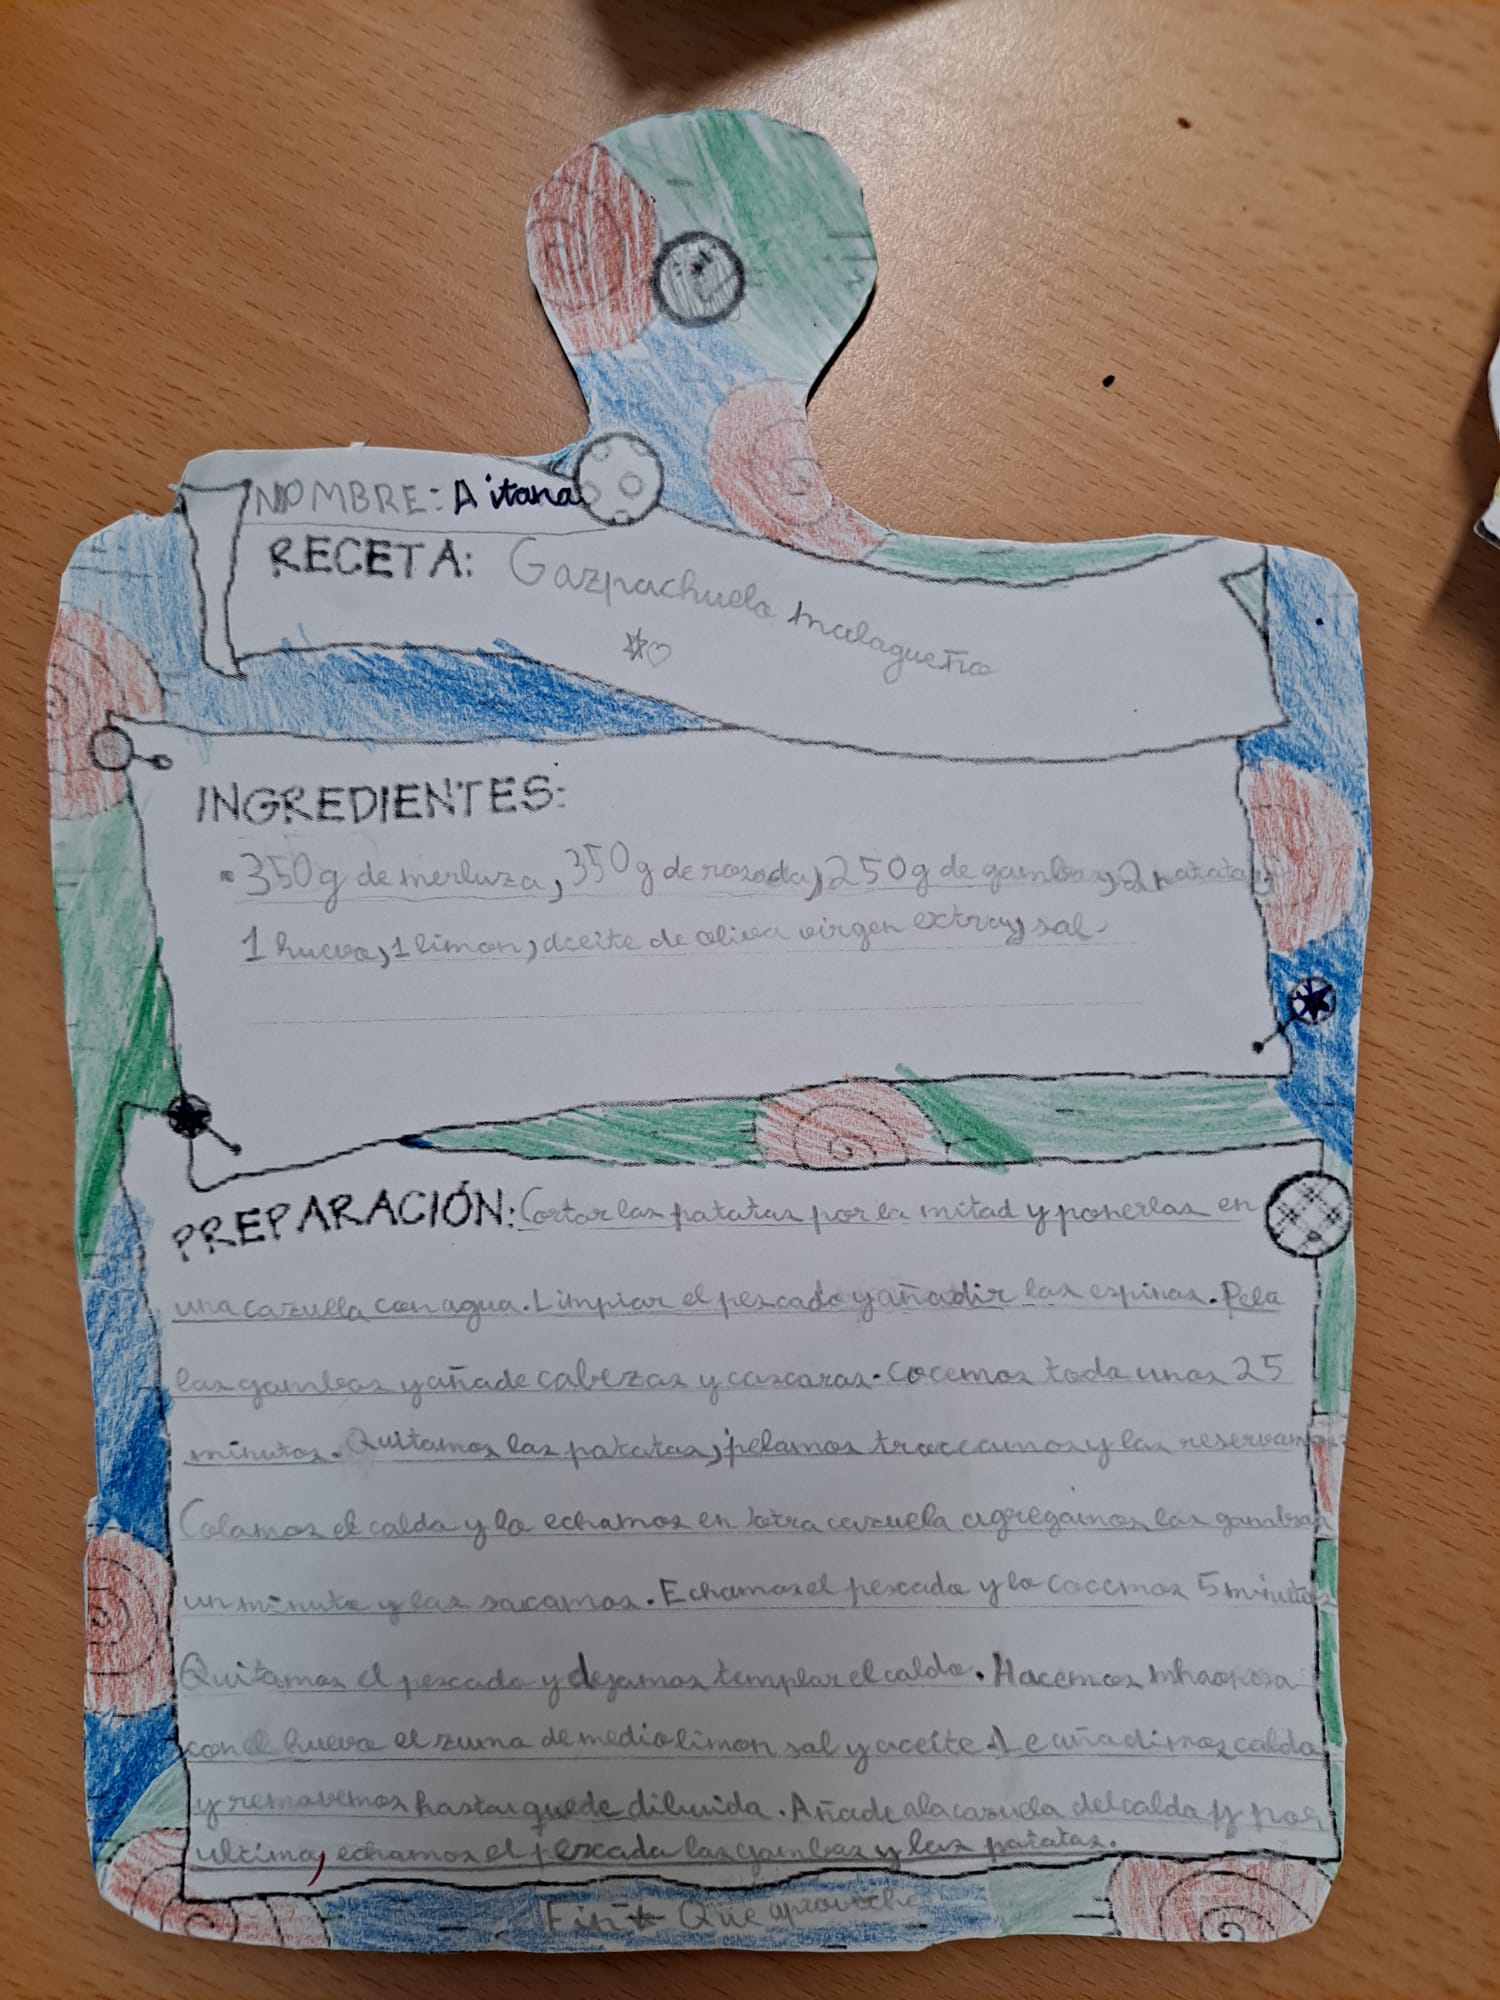 NOMBRE: Aitana
RECETA: Gazpachuelo malagueña
INGREDIENTES:
350g de merluza, 350g de rosada, 250g de gambas, 2 patatas
1 huevo, 1 limon, aceite de oliva virgen extra y sal.
PREPARACIÓN: Cortar las patatas por la mitad y ponerlas en
una cazuela con agua. Limpiar el pescado y añadir las espinas. Pela
las gambas y añade cabezas y cascaras. Cocemos todo unos 25
minutos. Quitamos las patatas, pelamos y las reservamos.
Colamos el caldo y lo echamos en otra cazuela agregamos las gambas
un minuto y las sacamos. Echamos el pescado y lo cocemos 5 minutos
Quitamos el pescado y dejamos templar el caldo. Hacemos
con el huevo el zumo de medio limon sal y aceite. Le añadimos caldo
y removemos hasta quede diluida. Añade a la cazuela del caldo y por
ultimo, echamos el pescado las gambas y las patatas.
Fin Que aproveche